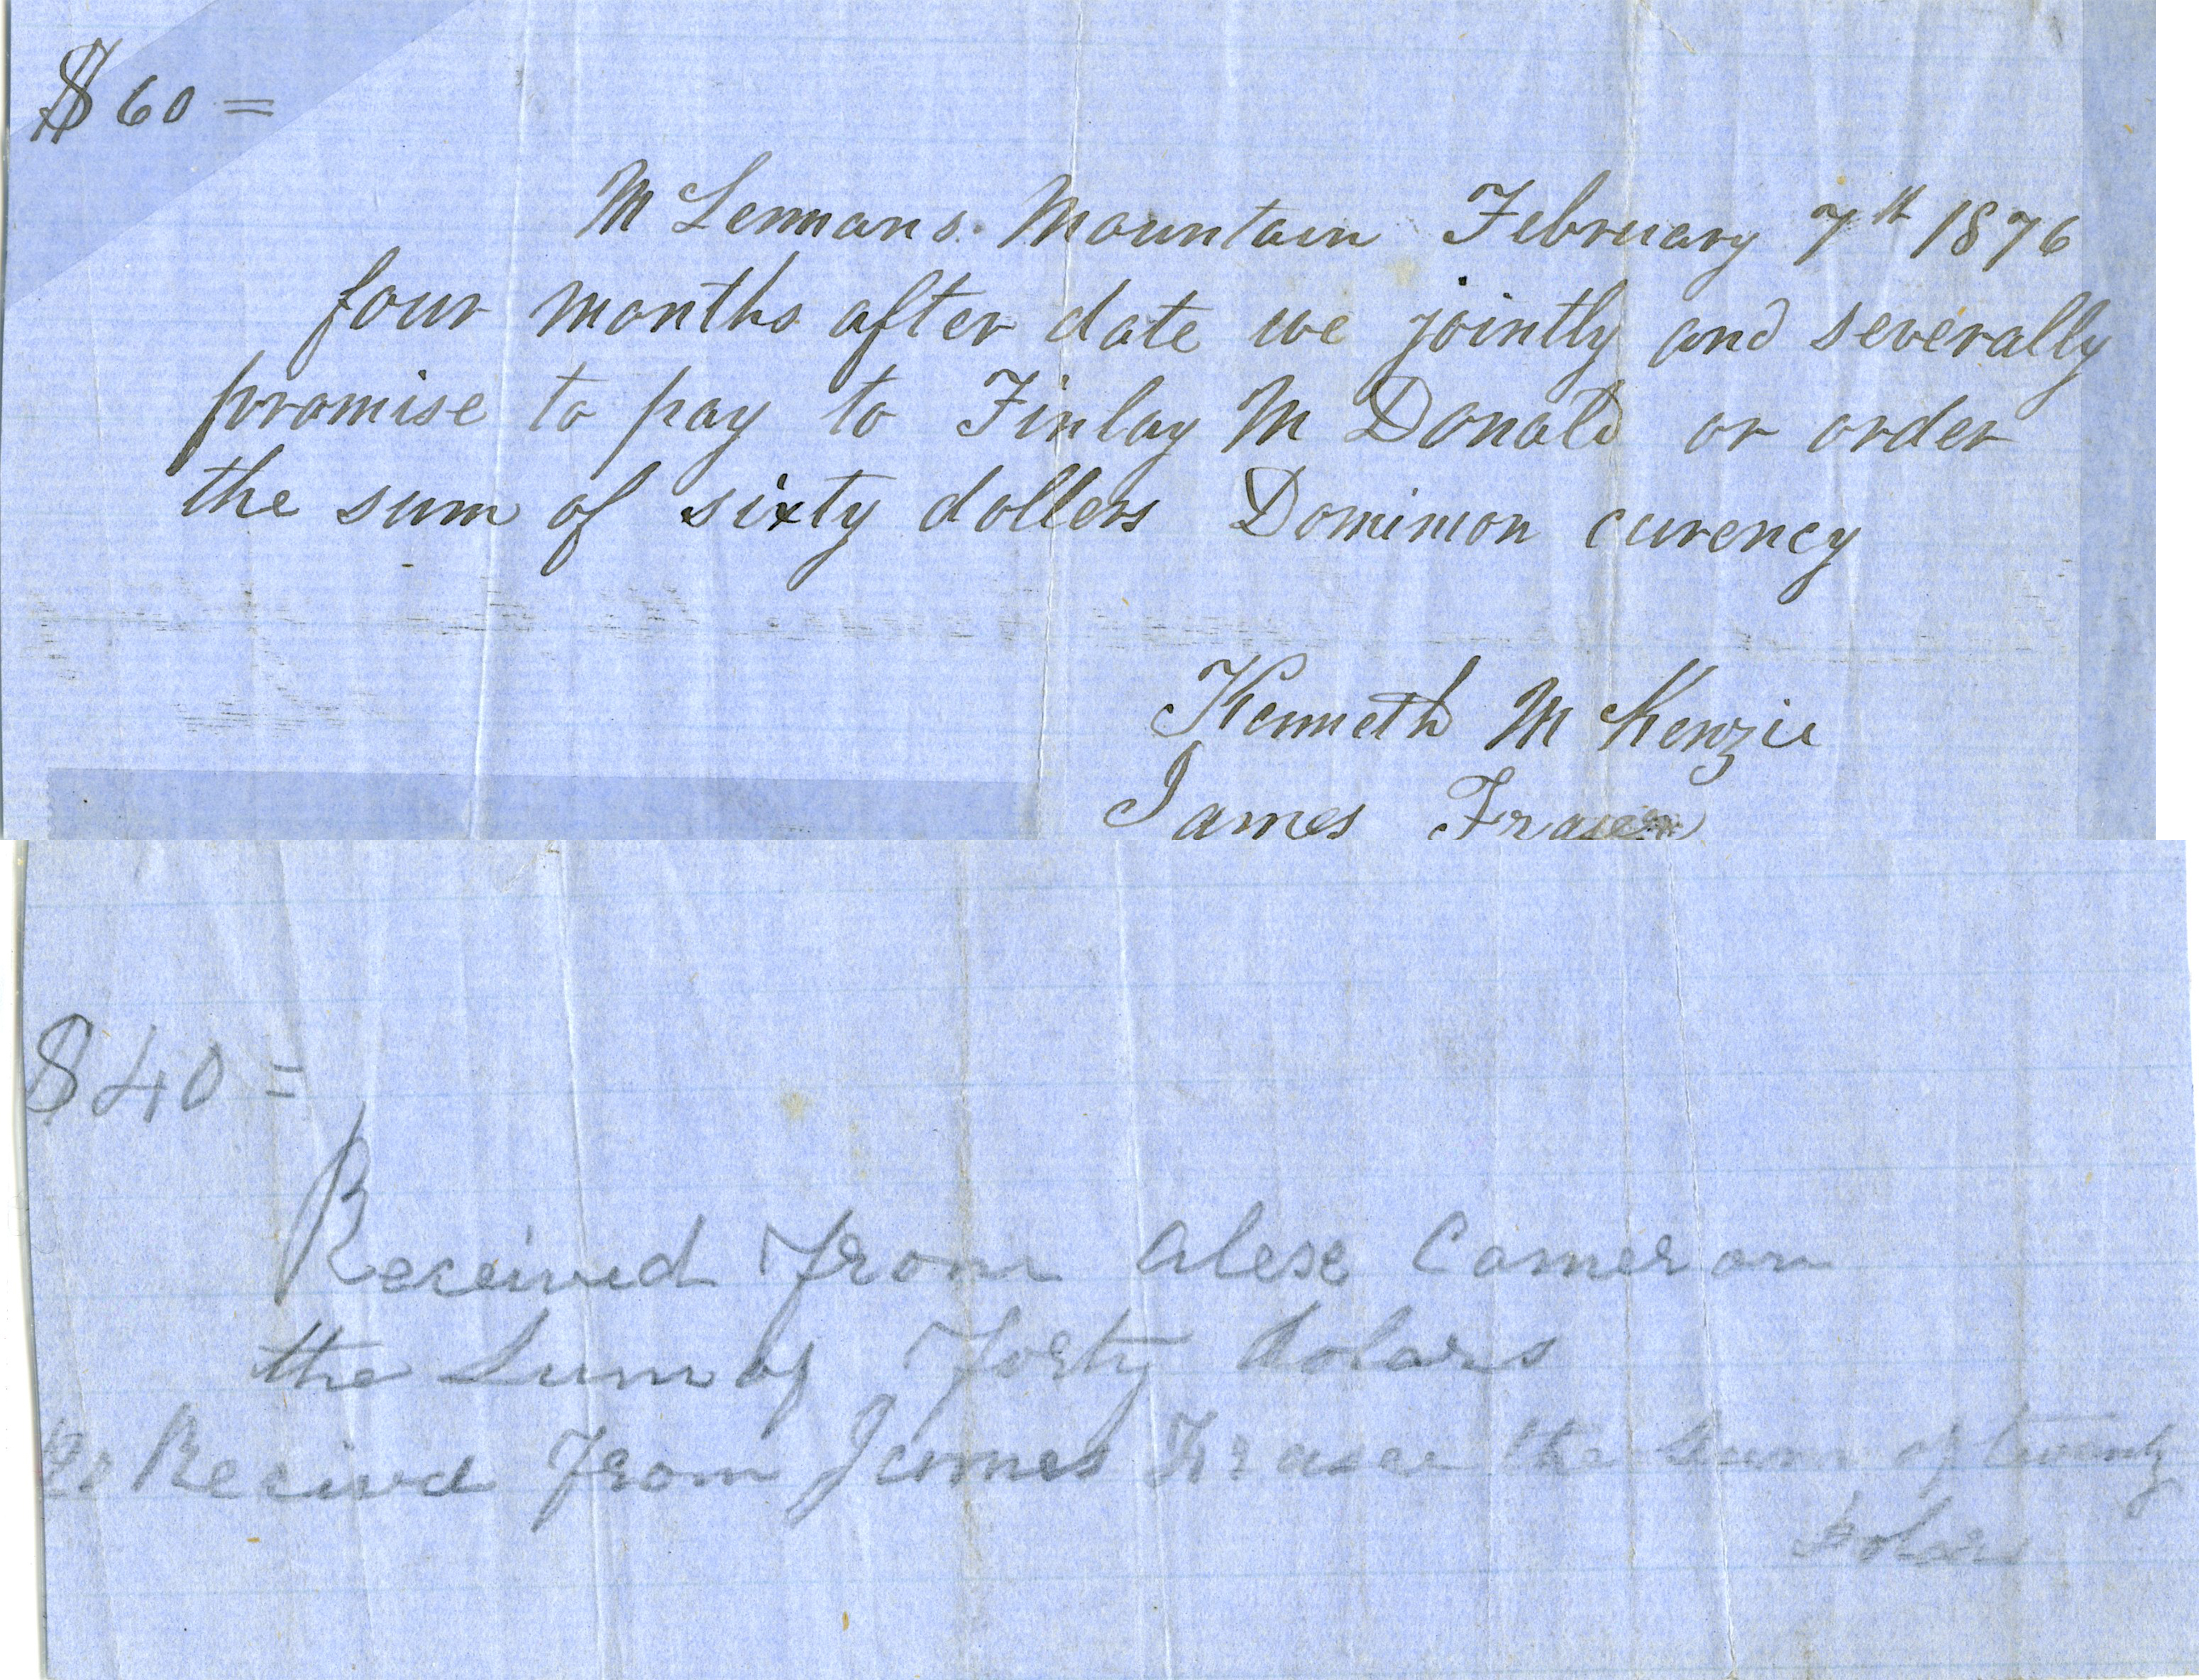 $60 =
M Lennans Mountain February 7th 1876
four months after date we jointly and severally
promise to pay to Finlay M Donald or order
the sum of sixty dollers Dominion curency
Kenneth M Kenzie
James Fraser
$40 =
Received from alexe Cameron
the Sum of Forty dolars
20 Recived from James Fraser the Sum of twenty
dolars